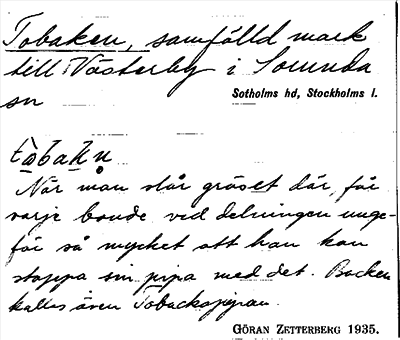 Tobaken, samfälld mark
till Västerby i Sorunda
sn
Sotholms hd, Stockholms l.
tòbakn
När man slår gräset där, får
varje bonde vid delningen unge-
fär så mycket att han kan
stoppa sin pipa med det. Backen
kallas även Tobackspipan.
GÖRAN ZETTERBERG 1935.